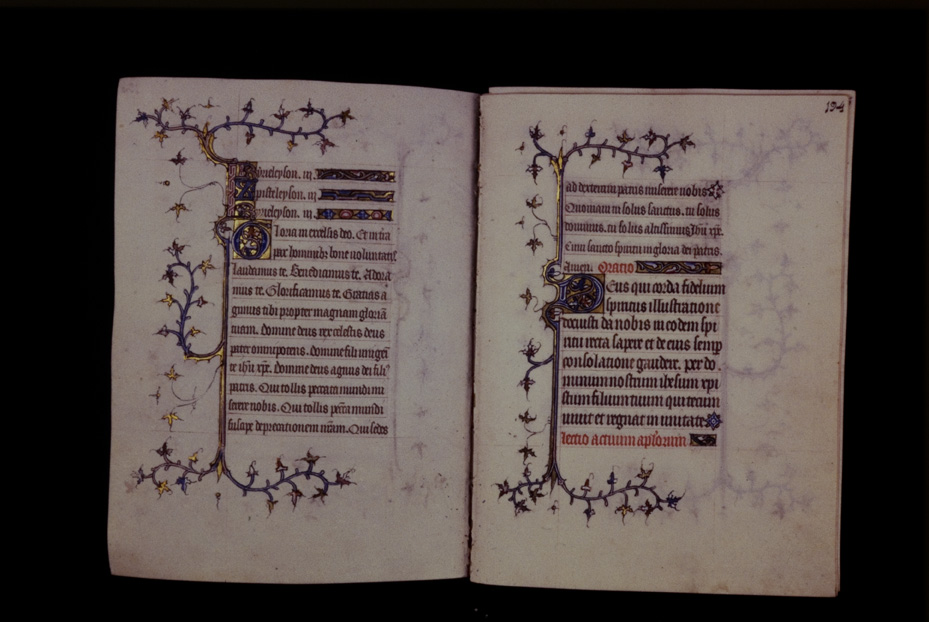 kyrieleyson. iii.
Christeleyson. iii.
kyrieleyson. iii.
Gloria in excelsis deo. Et in t̄ra
pax hominibz bone voluntatis
laudamus te. Benedicimus te. Adora
mus te. Glorificamus te. Gratias a
gimus tibi propter magnam gloriā
tuam. domine deus rex celestis deus
pater omnipotens. domine fili unigeī
te ihū xp̄e. domine deus agnus dei fili
patris. Qui tollis peccata mundi mi
serere nobis. Qui tollis pccā mundi
suscipe deprecationem nr̄am. Qui sedes
134
ad dexteram patris miserere nobis
Quoniam tu solus sanctus. tu solus
dominus. tu solus altissimus ihū xp̄e.
Cum sancto spiritu in gloria dei patris.
Amen. Oratio
Deus qui corda fidelium
spiritus illustratione
docuisti da nobis in eodem spi
ritu recta sapere et de eius semp
consolatione gaudere. per do
minum nostrum ihesum xpi
stum filium tuum qui tecum
vivit et regnat in unitate
lectio actuum apl̄orum